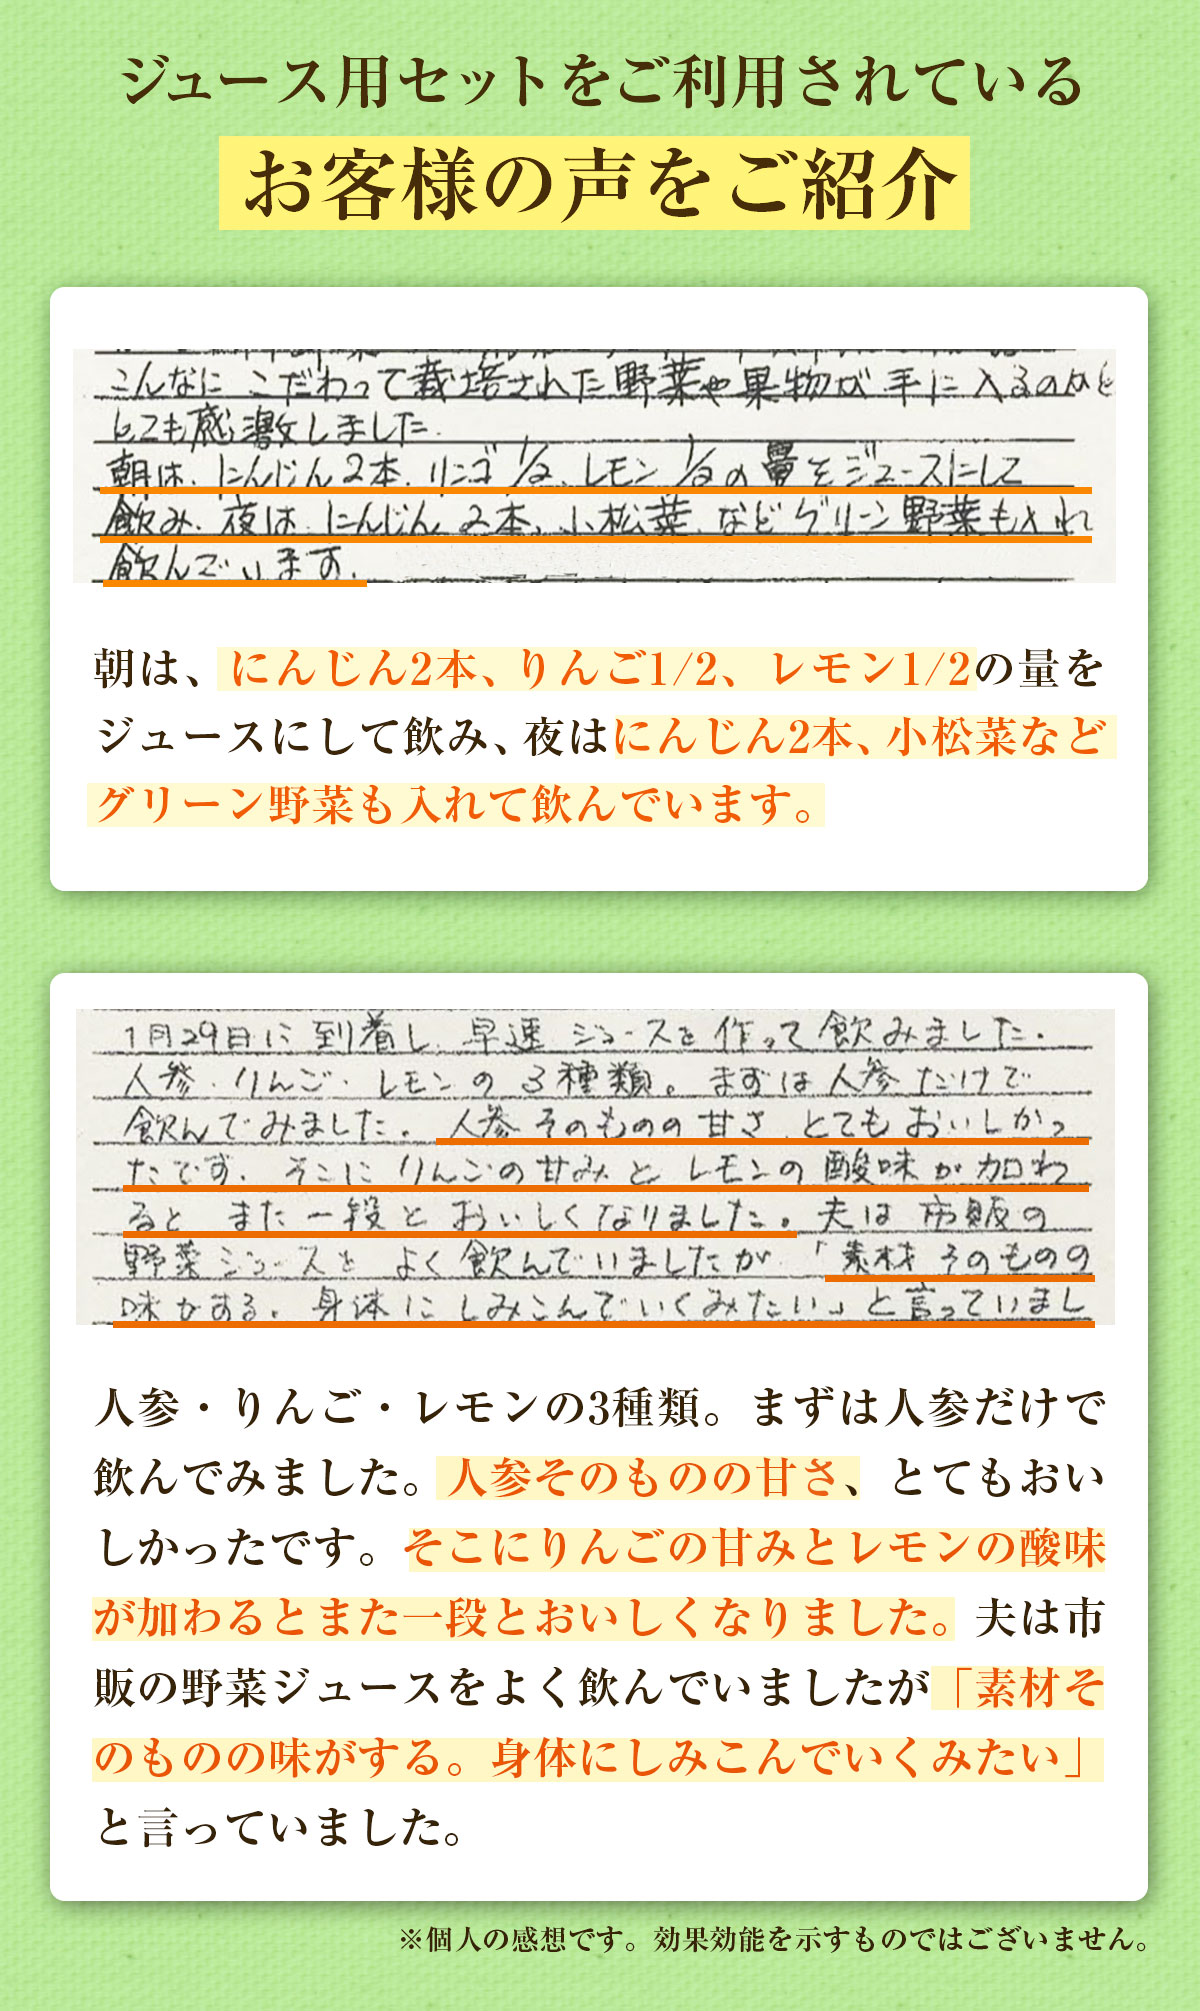 ジュース用セットをご利用されている
お客様の声をご紹介
こんなに こだわって栽培された野菜や果物が 手に入るのかと
とても感激しました.
朝は、にんじん2本、リンゴ1/2、レモン1/2の量をジュースにして
飲み、夜は、にんじん2本、小松菜、などグリーン野菜も入れ
飲んでいます。
朝は、にんじん2本、りんご1/2、レモン1/2の量を
ジュースにして飲み、夜はにんじん2本、小松菜など
グリーン野菜も入れて飲んでいます。
1月29日に到着し、早速ジュースを作って飲みました.
人参・りんご・レモンの3種類。まずは人参だけで
飲んでみました。人参そのものの甘さ、とてもおいしかっ
たです. そこにりんごの甘みとレモンの酸味が加わ
ると また一段と おいしくなりました。夫は市販の
野菜ジュースをよく飲んでいましたが「素材そのものの
味がする. 身体にしみこんでいくみたい」と言っていまし
人参・りんご・レモンの3種類。まずは人参だけで
飲んでみました。人参そのものの甘さ、とてもおい
しかったです。そこにりんごの甘みとレモンの酸味
が加わるとまた一段とおいしくなりました。夫は市
販の野菜ジュースをよく飲んでいましたが「素材そ
のものの味がする。身体にしみこんでいくみたい」
と言っていました。
※個人の感想です。効果効能を示すものではございません。